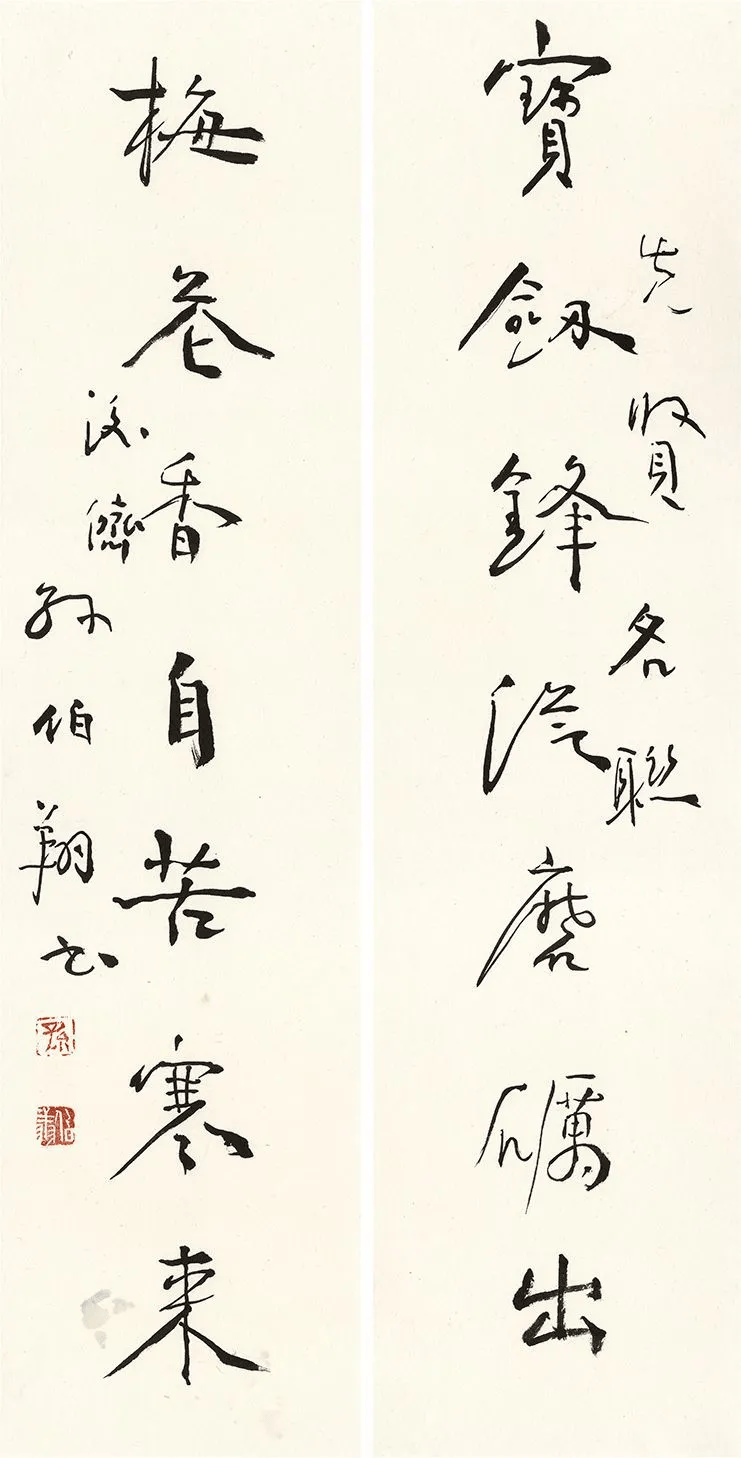 先賢名聯
寶劒鋒從磨礪出
梅花香自苦寒來
後儕
孫伯翔書
孫
伯翔